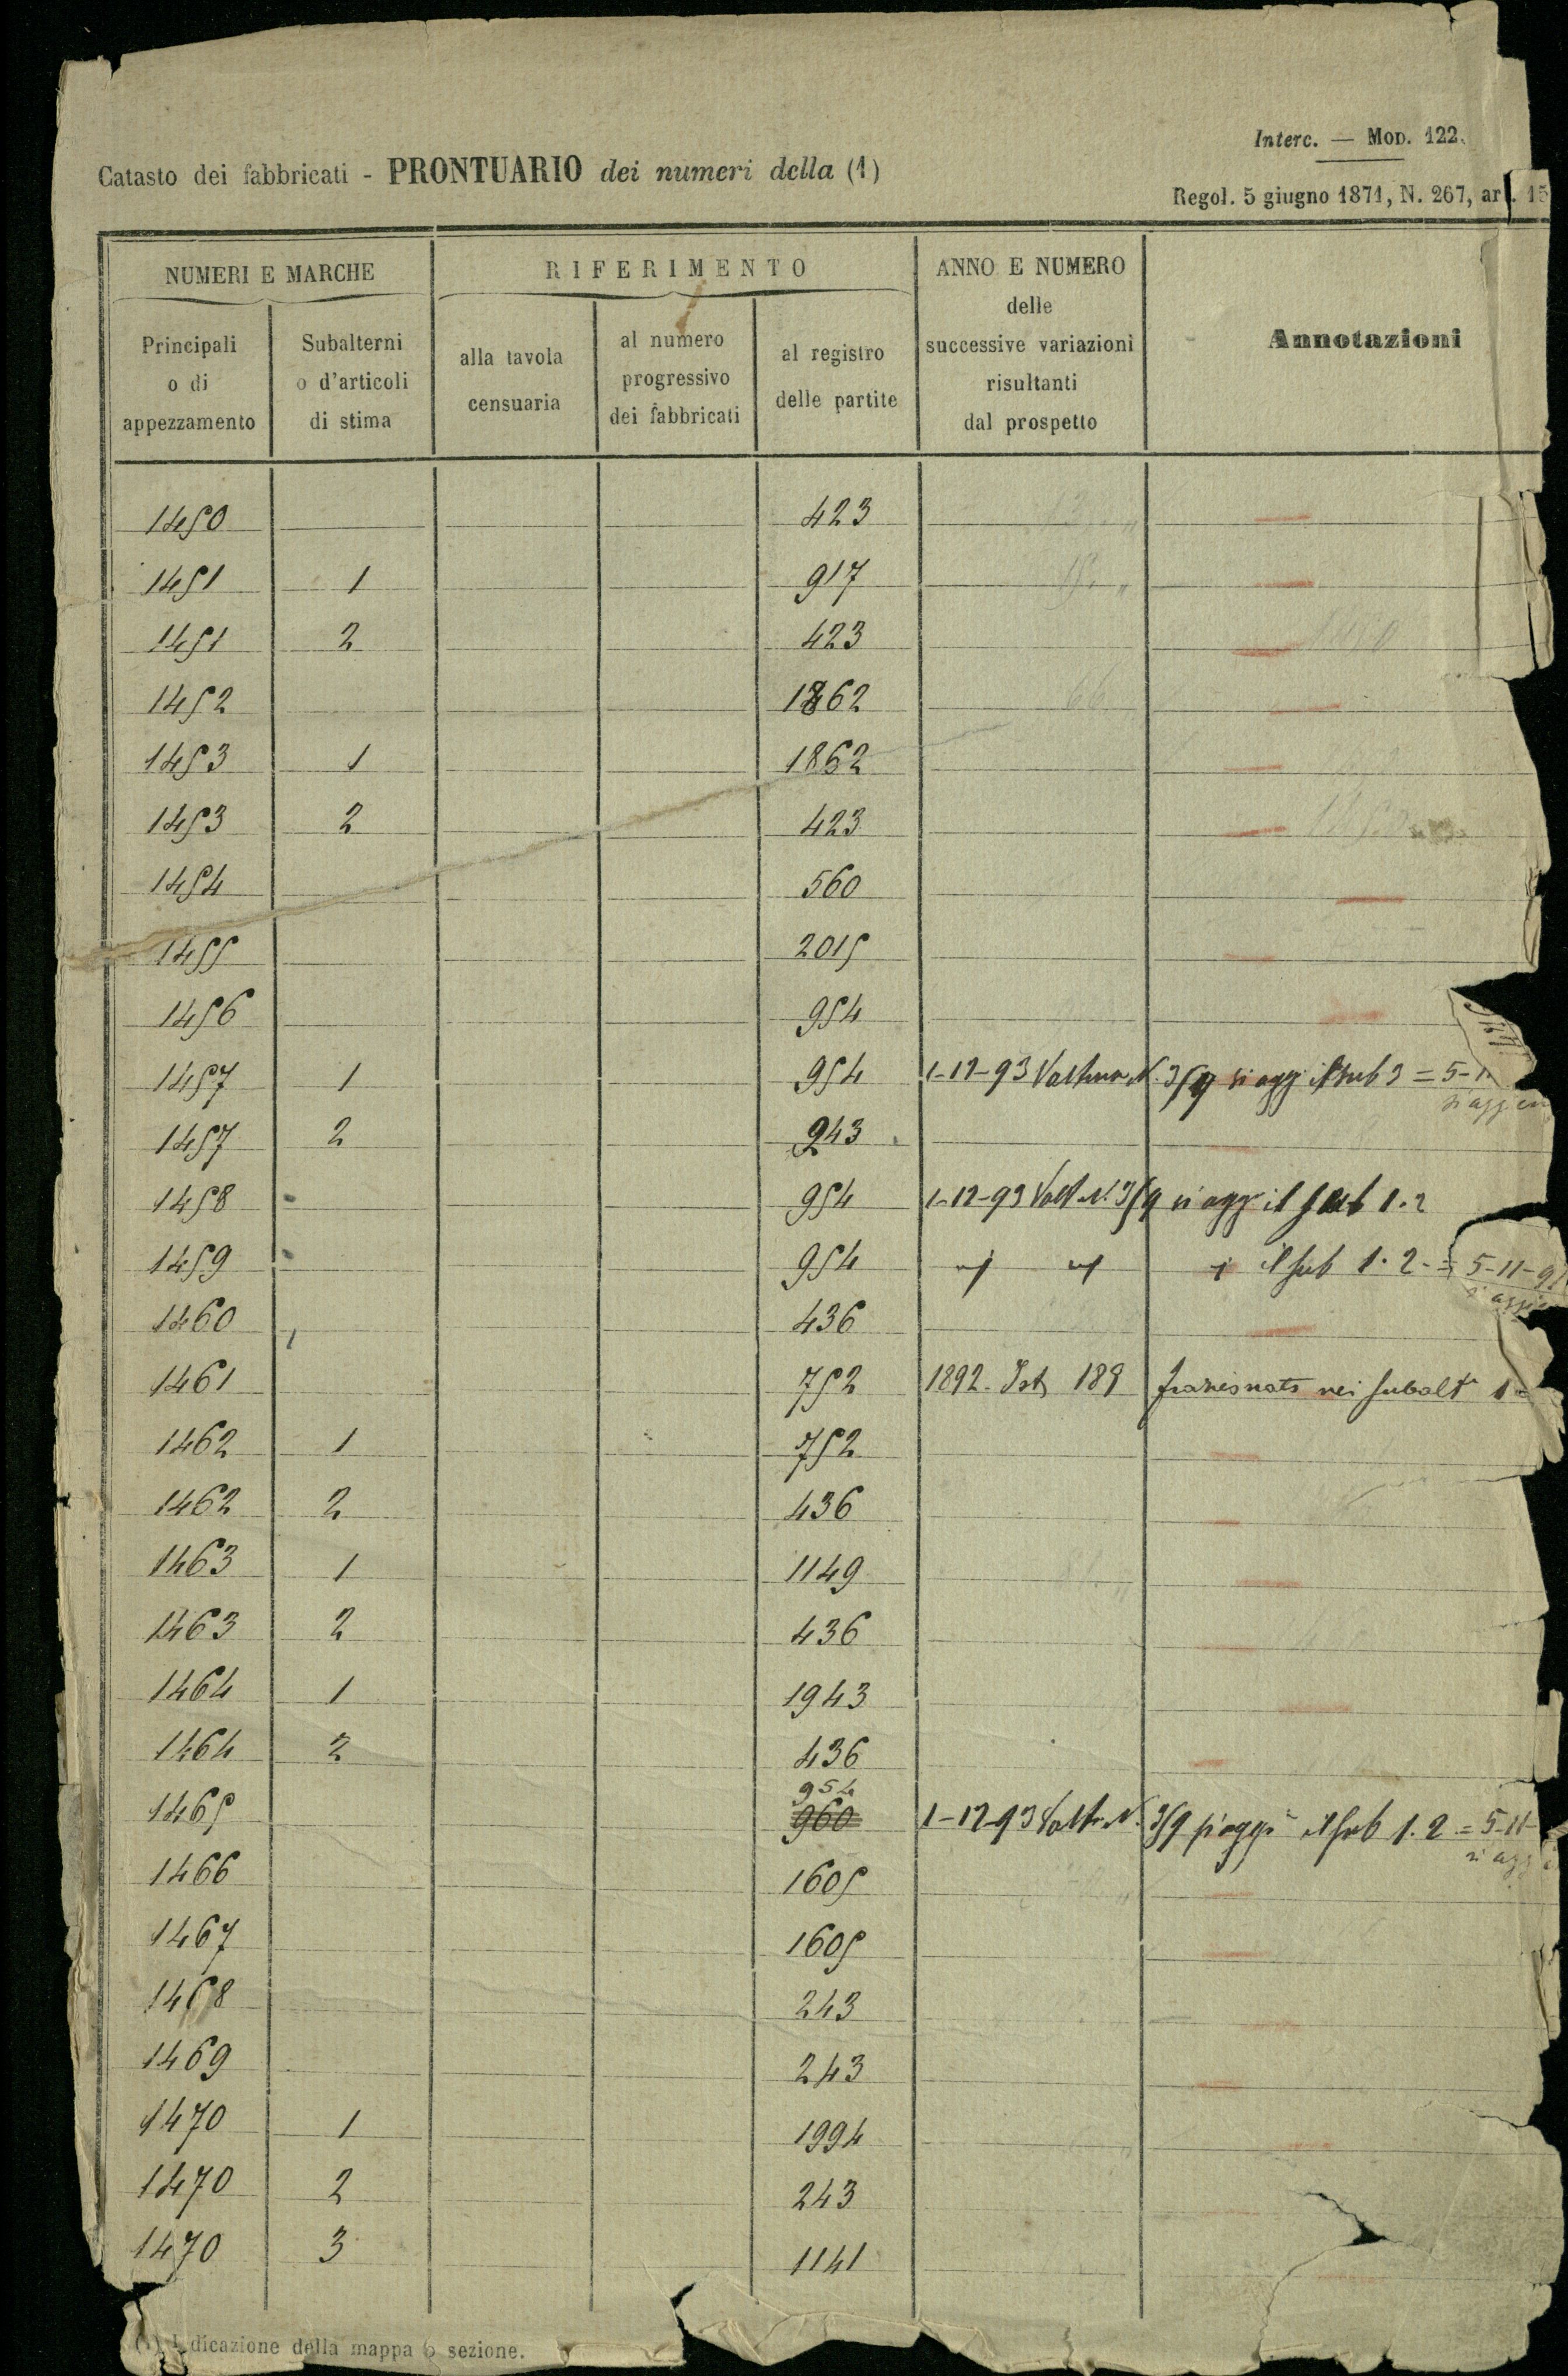 Interc. — Mod. 122.
Catasto dei fabbricati - PRONTUARIO dei numeri della (1)
Regol. 5 giugno 1871, N. 267, art. 15
NUMERI E MARCHE
RIFERIMENTO
ANNO E NUMERO
delle
successive variazioni
risultanti
dal prospetto
Annotazioni
Principali
o di
appezzamento
Subalterni
o d'articoli
di stima
alla tavola
censuaria
al numero
progressivo
dei fabbricati
al registro
delle partite
1450 423
1451 1 917
1451 2 423
1452 1862
1453 1 1862
1453 2 423
1454 560
1455 2015
1456 954
1457 1 954 1-12-93 N. 3/9 si agg il sub 3 = 5-1
si agg
1457 2 243
1458 954 1-12-93 Volt N. 3/9 si agg il sub 1.2
1459 954 " " " il sub 1.2 = 5-11-9
1460 436
1461 752 1892. 189 frazionato nei subalt 1
1462 1 752
1462 2 436
1463 1 1149
1463 2 436
1464 1 1943
1464 2 436
954
1465 960 1-12-93 Volt. N. 3/9 si agg il sub 1.2 = 5-11-
si agg
1466 1605
1467 1605
1468 243
1469 243
1470 1 1994
1470 2 243
1470 3 1141
(1) Indicazione della mappa o sezione.